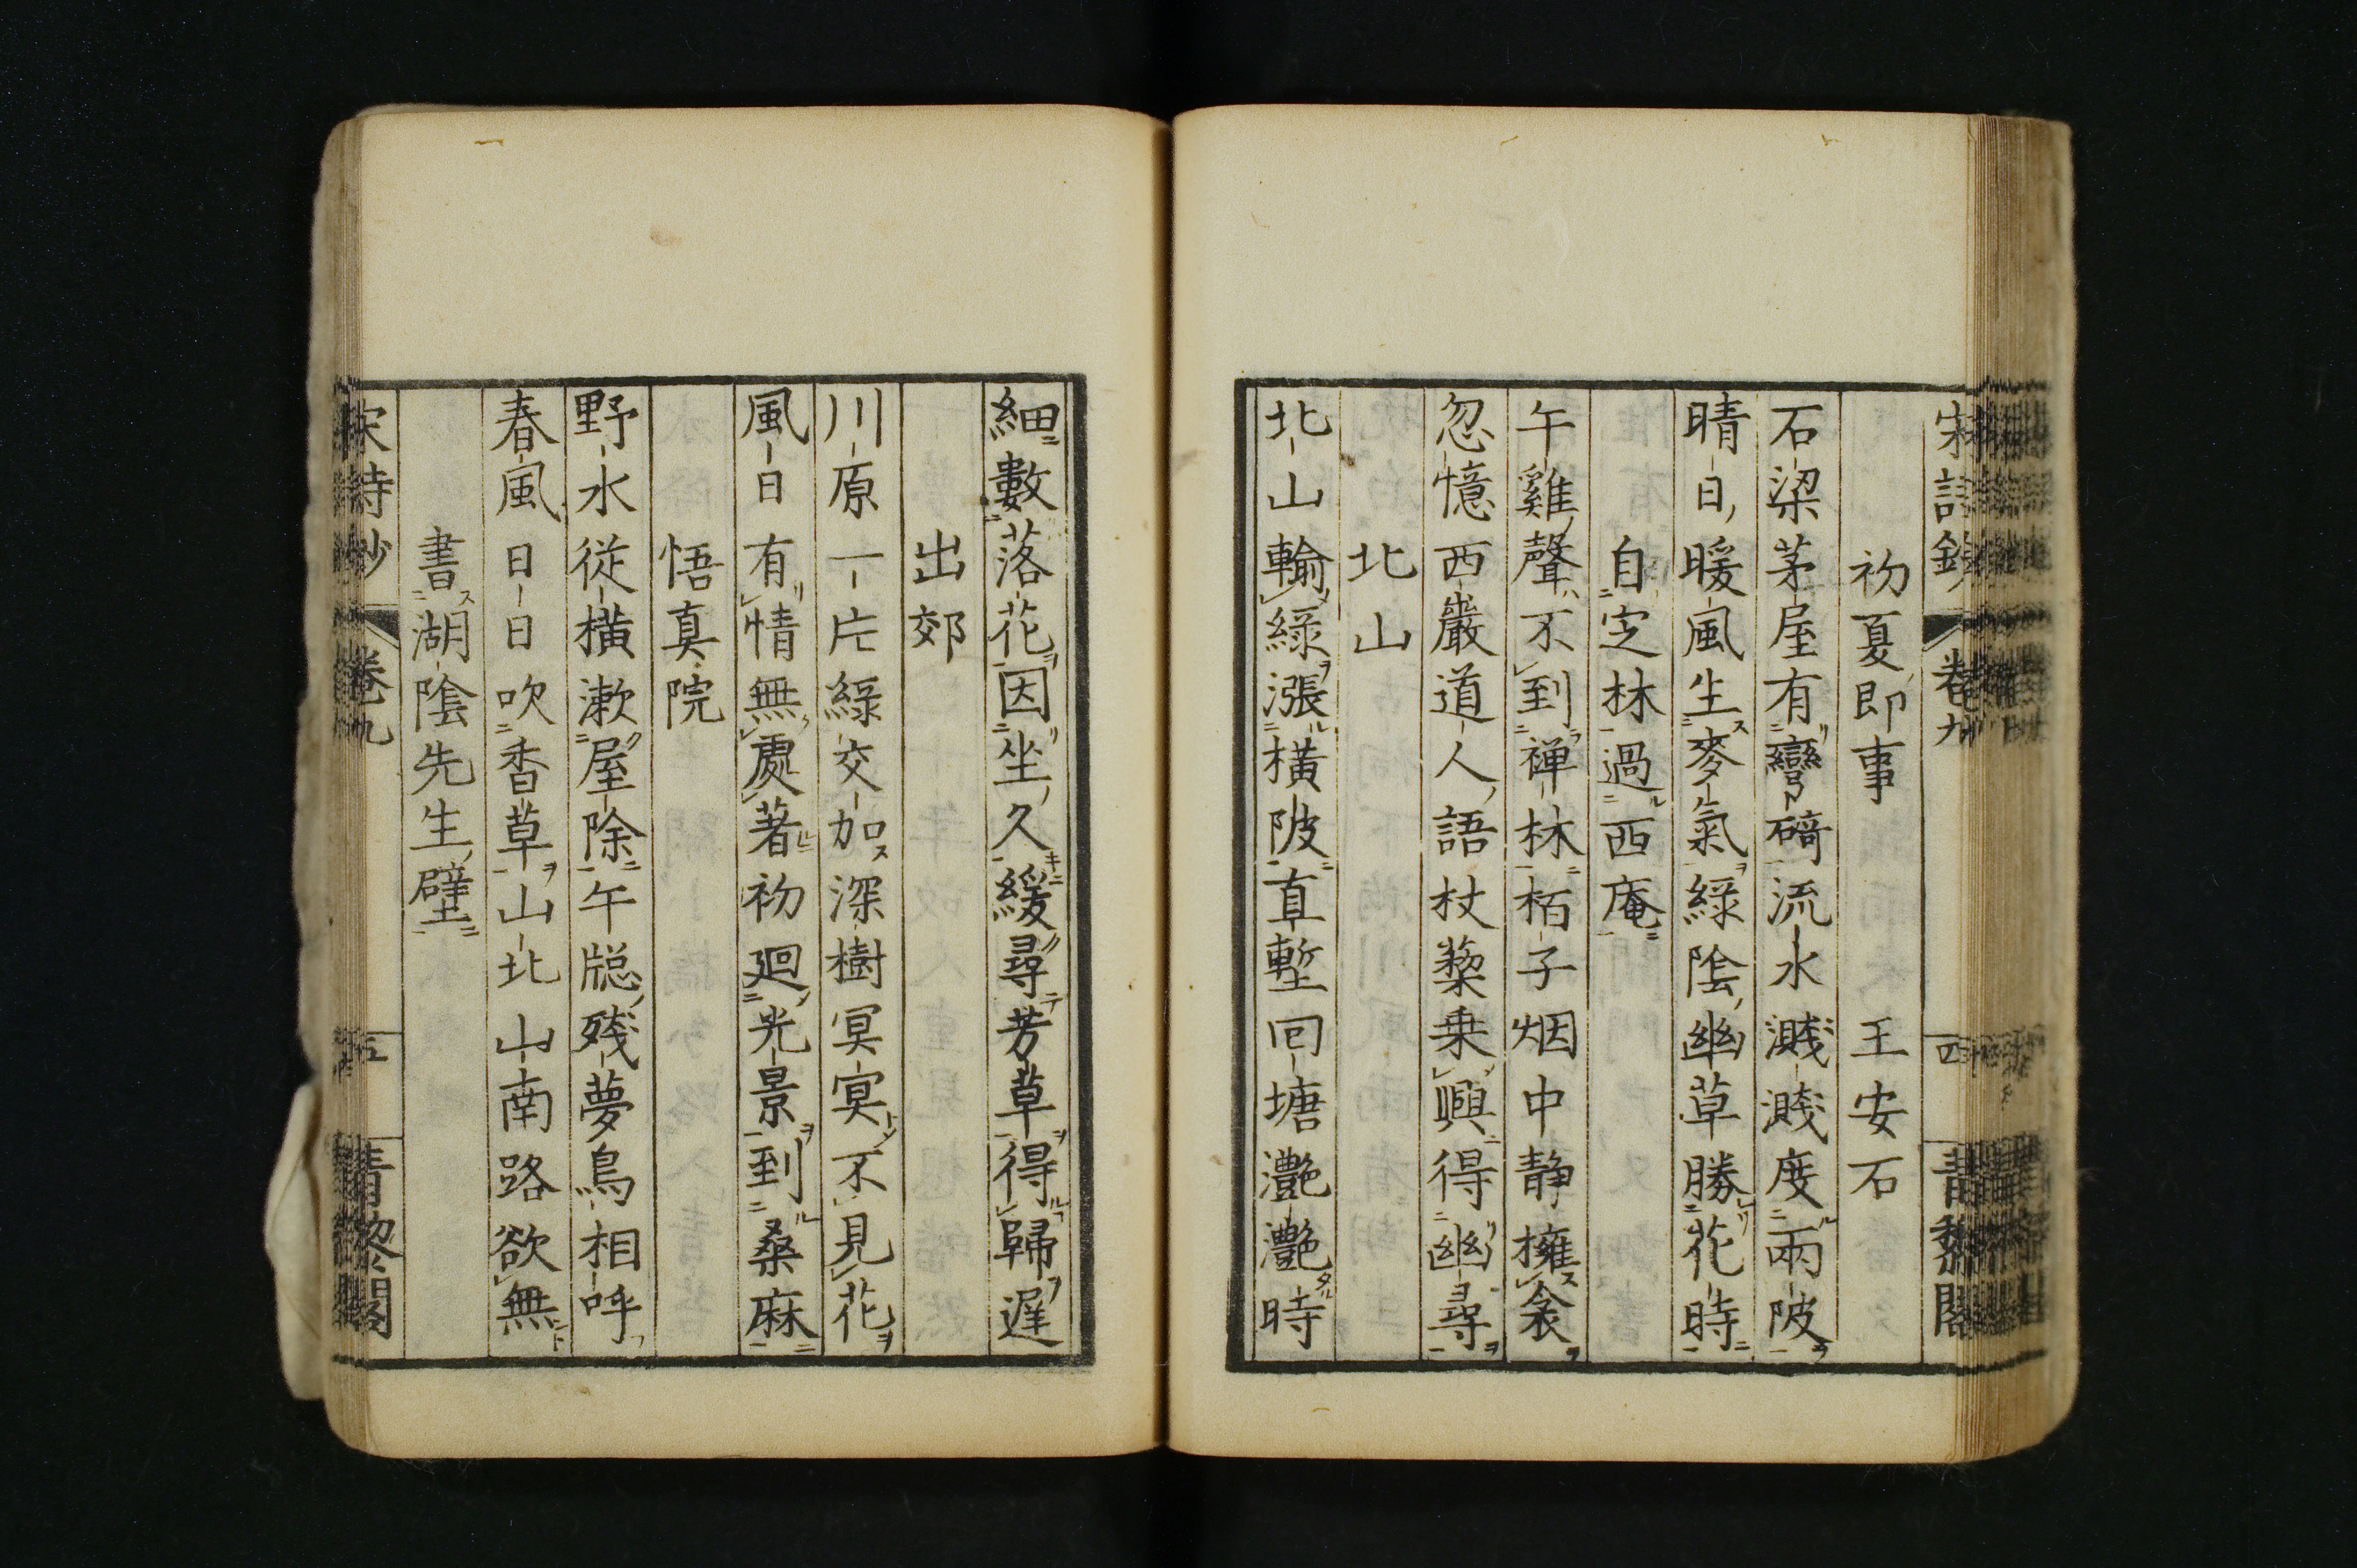 初夏即事 王安石
石梁茅屋有彎碕流水濺濺度兩陂
晴日暖風生麥氣綠陰幽草勝花時
自定林過西庵
午雞聲不到禅林栢子烟中静擁衾
忽憶西巖道人語杖藜乗興得幽尋
北山
北山輸綠漲橫陂直塹回塘灔灔時
細數落花因坐久緩尋芳草得歸遅
出郊
川原一片綠交加深樹冥冥不見花
風日有情無處著初廻光景到桑麻
悟真院
野水従横漱屋除午牎残夢鳥相呼
春風日日吹香草山北山南路欲無
書湖陰先生壁
宋詩鈔 卷九 五 青黎閣